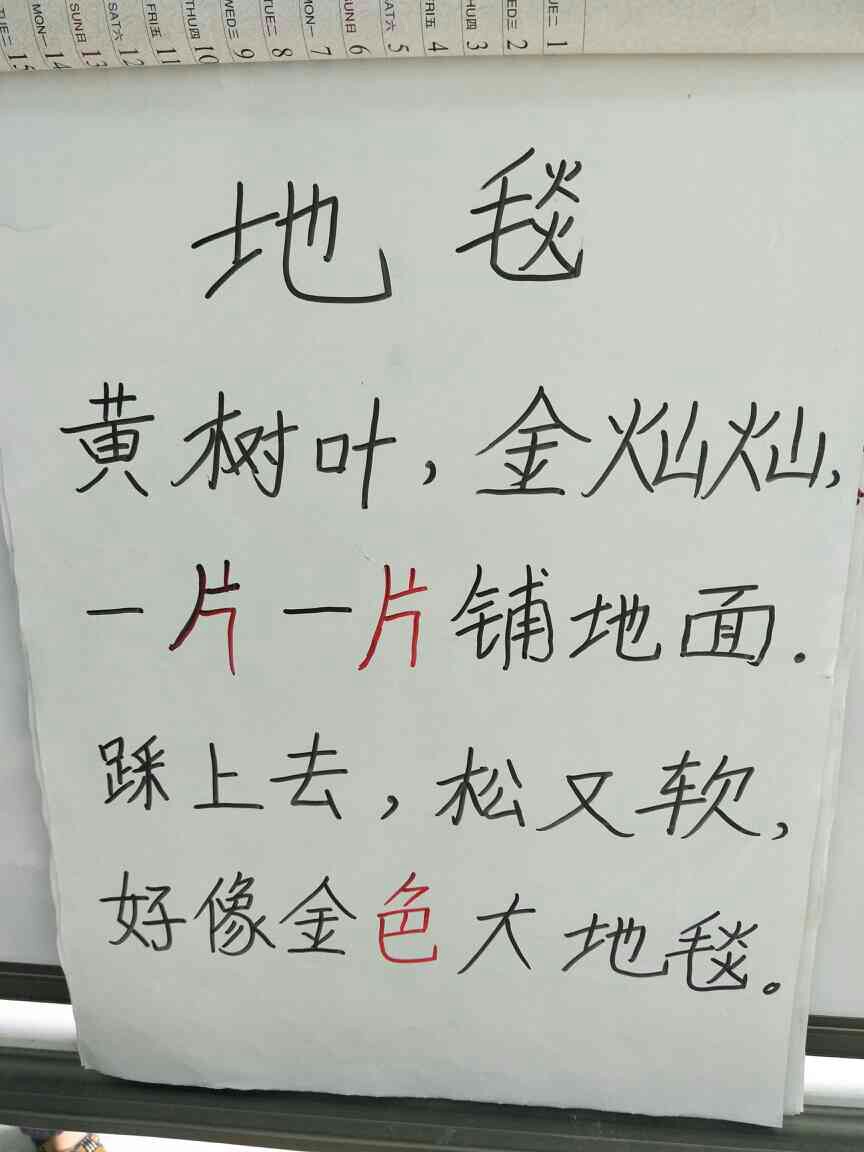 TUE二 1
WED三 2
THU四 3
FRI五 4
SAT六 5
SUN日 6
MON一 7
TUE二 8
WED三 9
THU四 10
FRI五 11
SAT六 12
SUN日 13
MON一 14
TUE二 15
地毯
黄树叶,金灿灿,
一片一片铺地面.
踩上去,松又软,
好像金色大地毯。